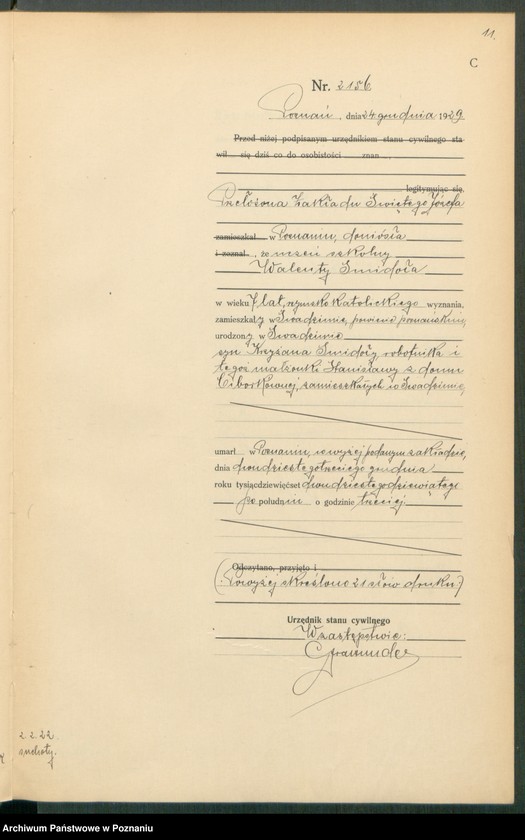 11.
C
Nr. 2156
Poznań, dnia 24 grudnia 1929
Przed niżej podpisanym urzędnikiem stanu cywilnego sta
wił się dziś co do osobistości znan
legitymując się
Przełożona Zakładu Świętego Józefa
zamieszkał w Poznaniu, doniosła
i zeznał, że uczeń szkolny
Walenty Smidoła
w wieku 7 lat, rzymsko katolickiego wyznania,
zamieszkały w Swadzimie, powiecie poznańskim,
urodzony w Swadzimie
syn Krzyżana Smidoły robotnika i
tegoż małżonki Stanisławy z domu
zamieszkałych w Swadzimie,
umarł w Poznaniu, w wyżej podanym zakładzie,
dnia dwudziestego trzeciego grudnia
roku tysiącdziewięćset dwudziestego dziewiątego
po południu o godzinie trzeciej.
Odczytano, przyjęto i
(Powyżej skreślono 21 słów druku.)
Urzędnik stanu cywilnego
W zastępstwie:
2 2 22.
Archiwum Państwowe w Poznaniu